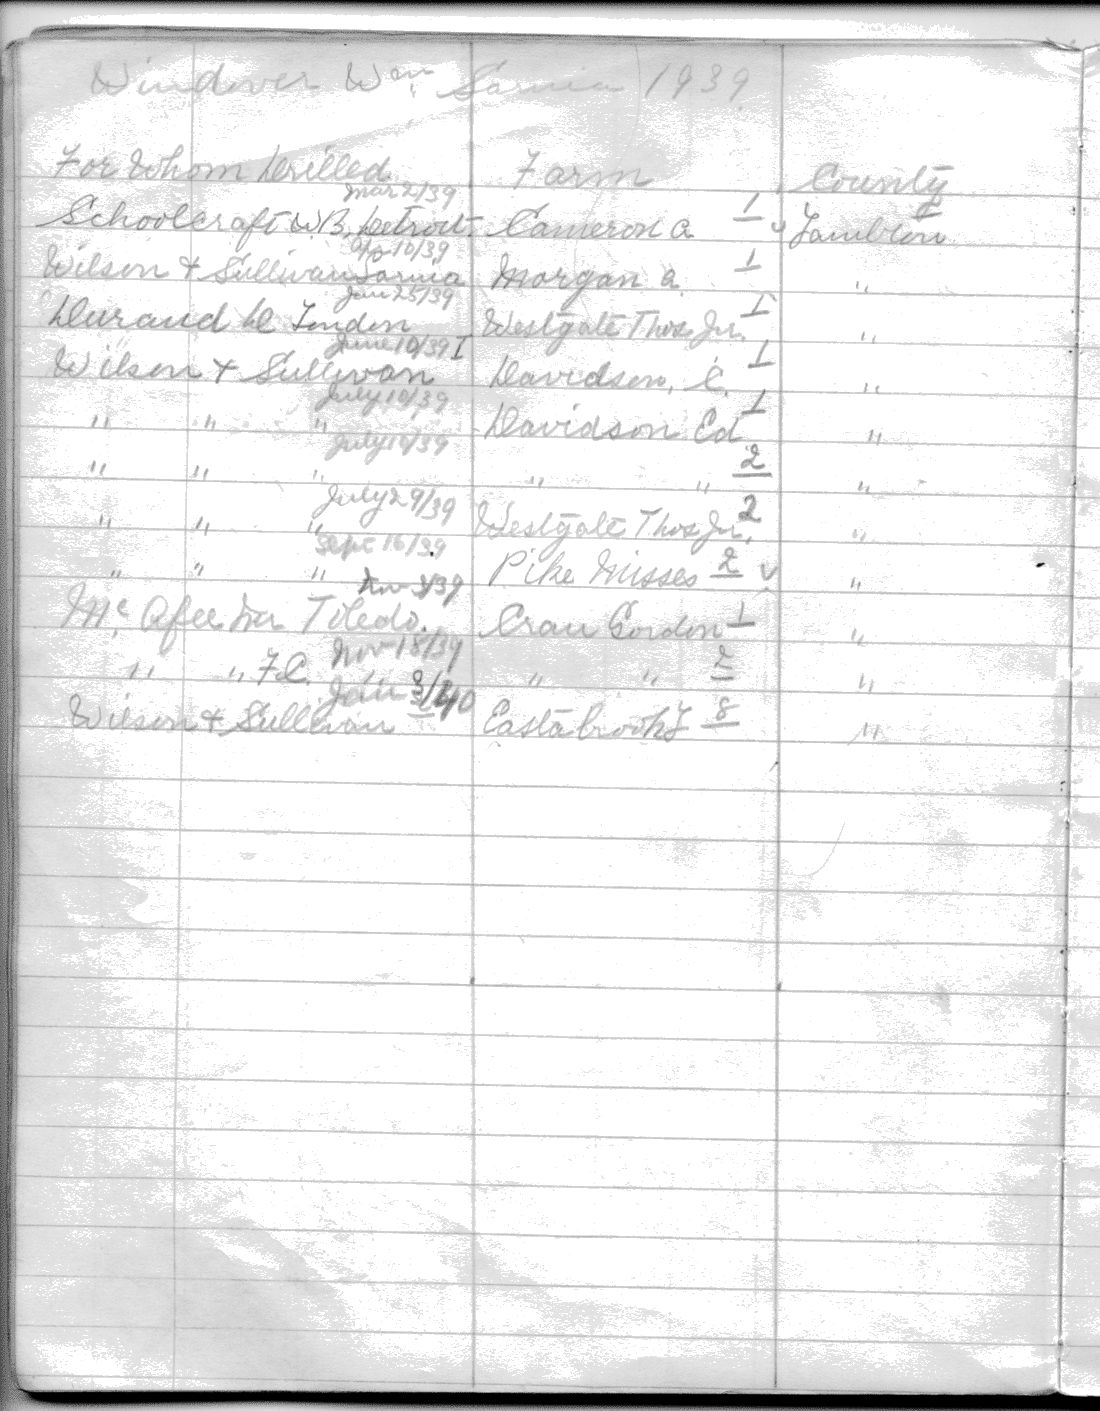 Windover Wm. Sarnia 1939
For Whom Drilled Farm County
Mar 2/39
Schoolcraft W.B. Detroit. Cameron A 1 Lambton
Apr 10/39
Wilson & Sullivan Sarnia Morgan A. 1 "
Jan 25/39
Durand D London Westgate Thos Jr. 1 "
June 10/39
Wilson & Sullivan Davidson, C. 1 "
July 10/39
" " " Davidson Ed 1 "
July 19/39
" " " " " 2 "
July 29/39
" " " Westgate Thos Jr. 2 "
Sept 16/39
" " " Pike Misses 2 v "
Nov 3/39
Mc Afee Toledo. Gordon 1 "
Nov 18/39
" " F.C. " " 2 "
Jan /40
Wilson & Sullivan Eastabrook F 8 "